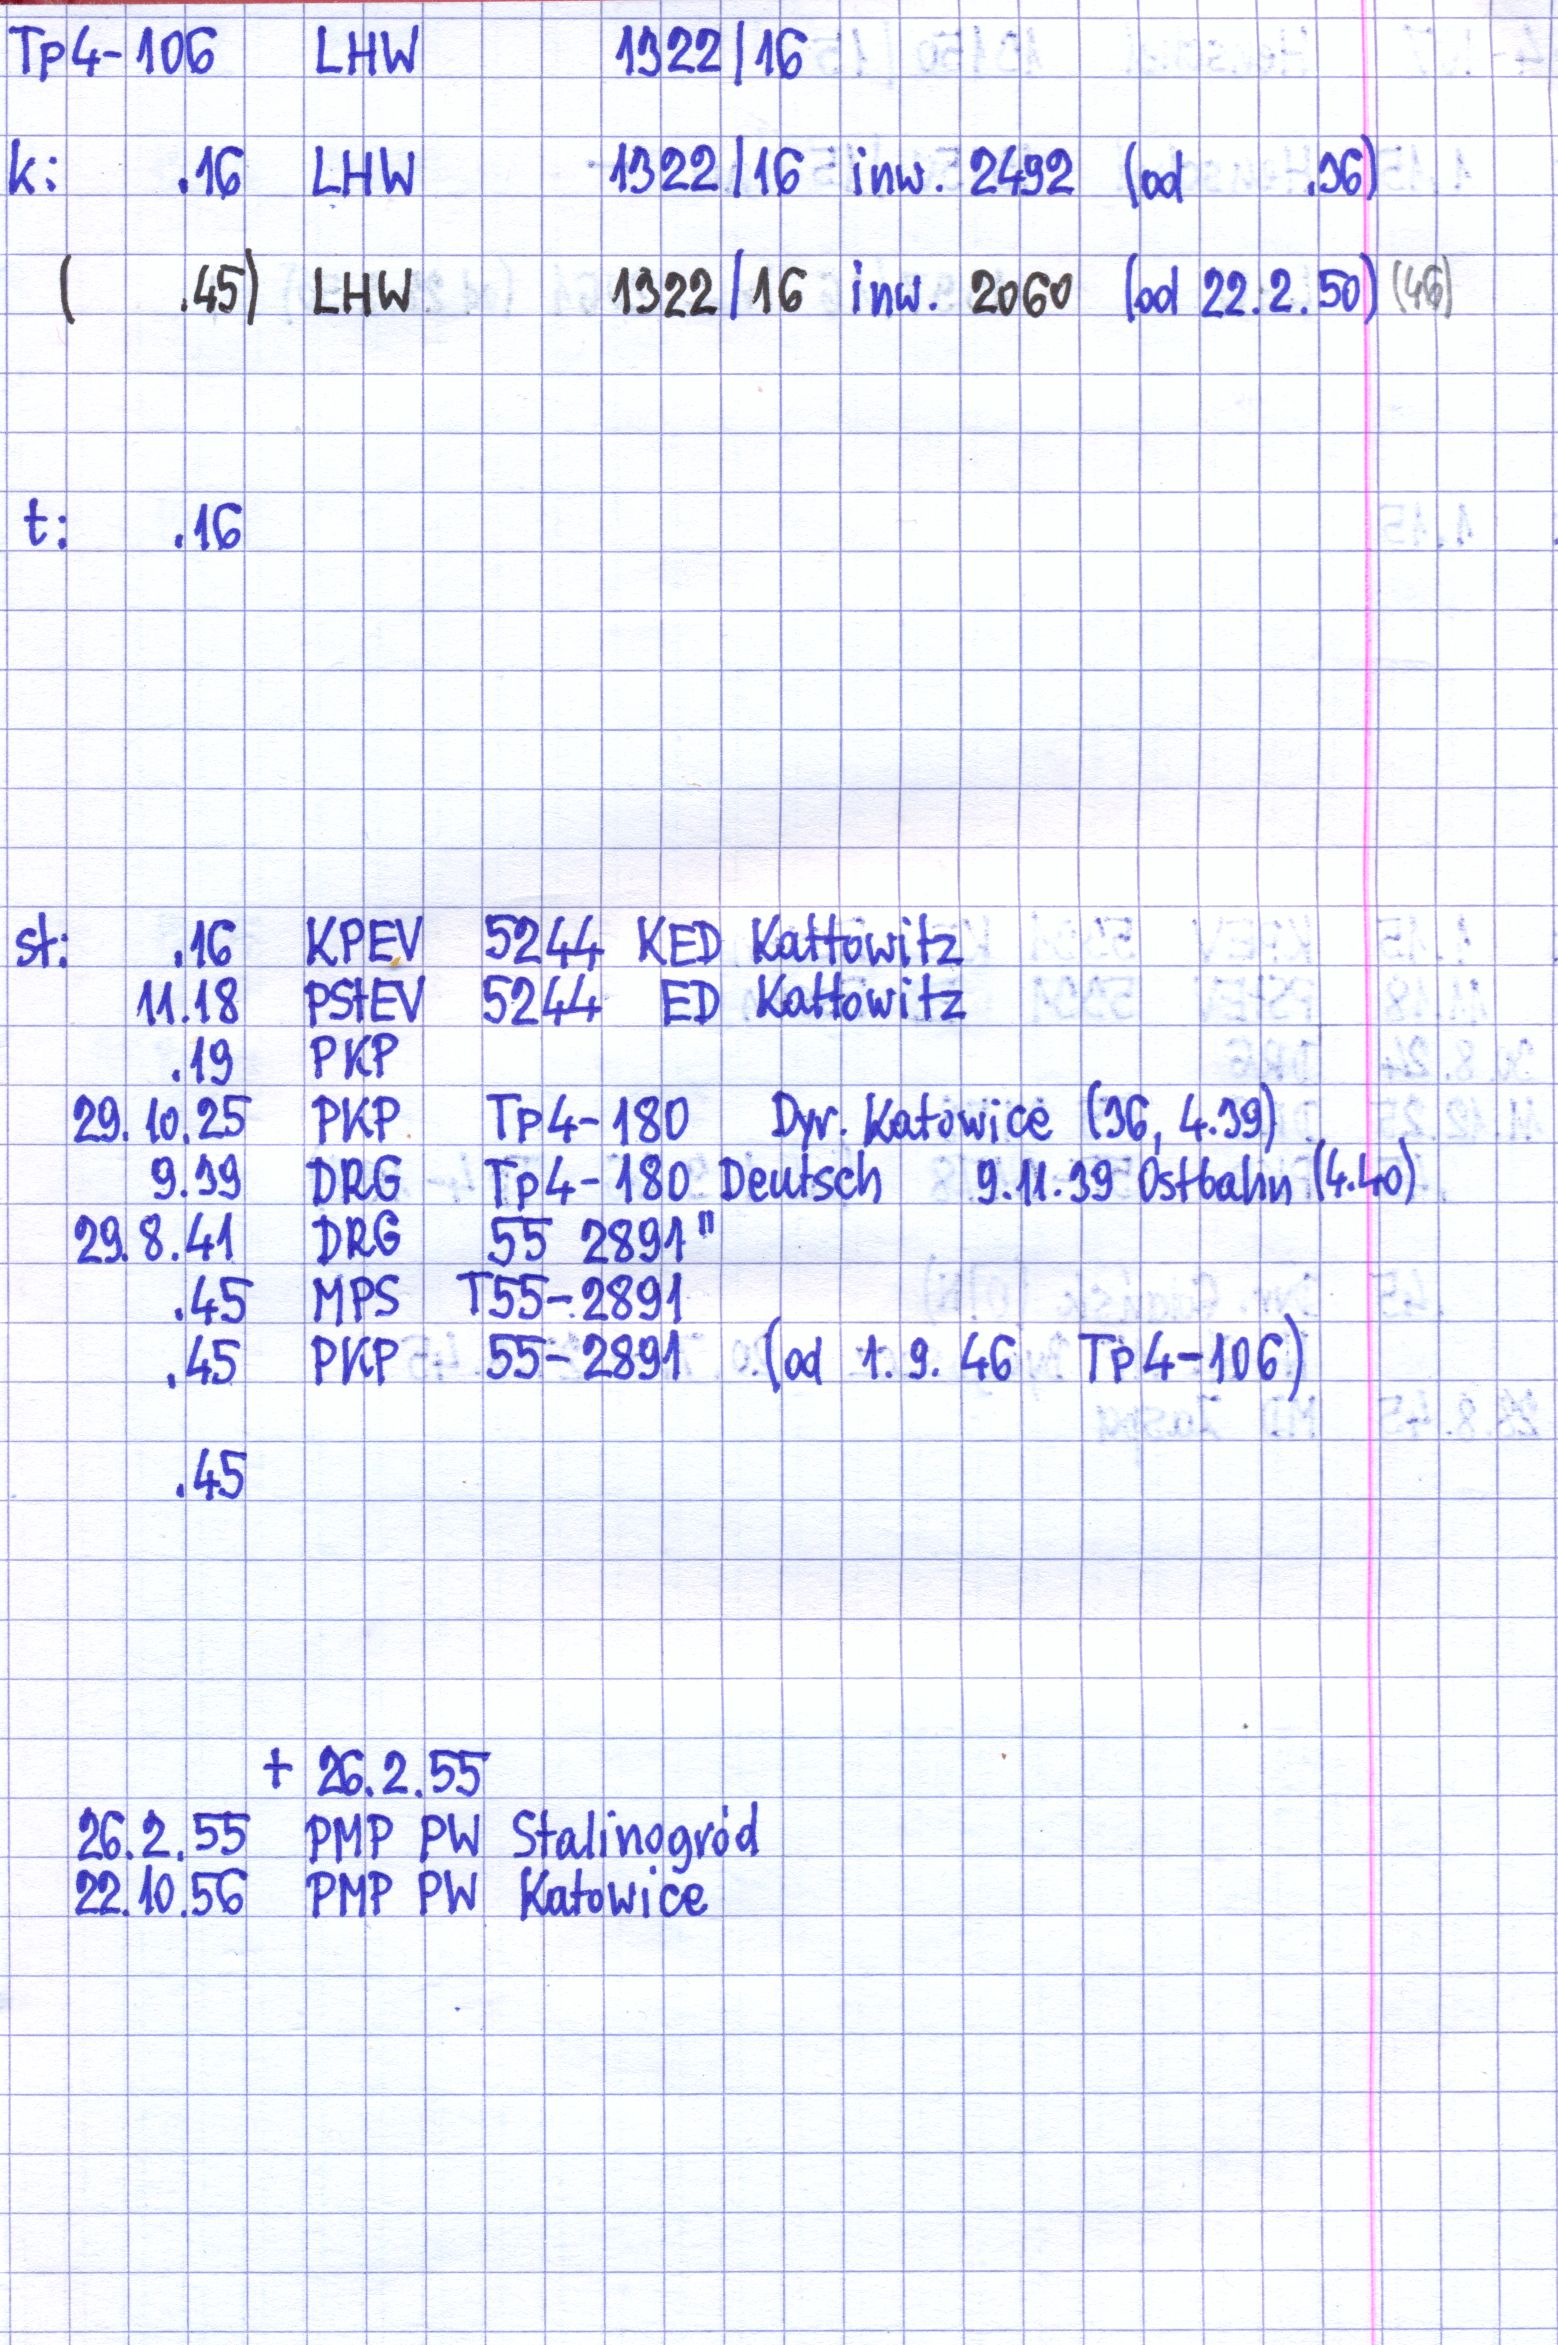 Tp4-106 LHW 1322/16
k: .16 LHW 1322/16 inw. 2492 (od .36)
( .45) LHW 1322/16 inw. 2060 (od 22.2.50) (46)
t: .16
st: .16 KPEV 5244 KED Kattowitz
11.18 PStEV 5244 ED Kattowitz
.19 PKP
29.10.25 PKP Tp4-180 Dyr. Katowice (36, 4.39)
9.39 DRG Tp4-180 Deutsch 9.11.39 Ostbahn (4.40)
29.8.41 DRG 55 2891"
.45 MPS T55-2891
.45 PKP 55-2891 (od 1.9.46 Tp4-106)
.45
+ 26.2.55
26.2.55 PMP PW Stalinogród
22.10.56 PMP PW Katowice